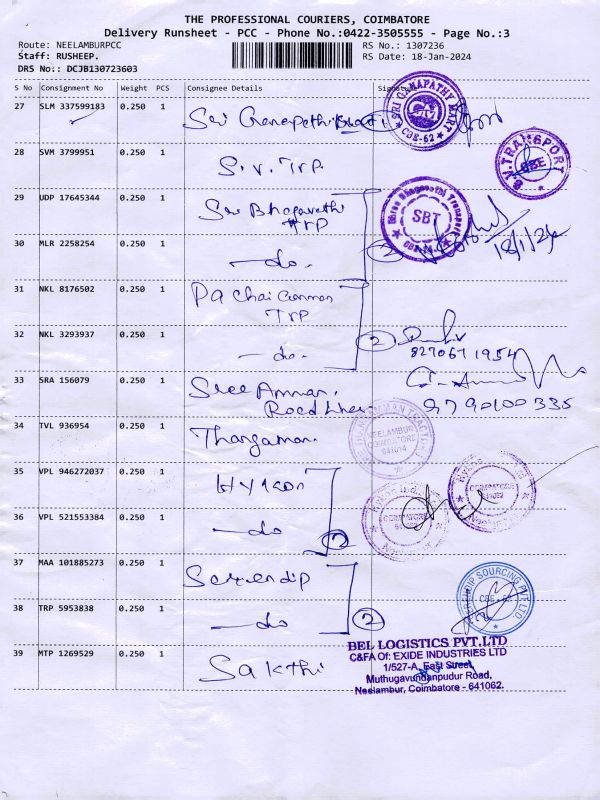 THE PROFESSIONAL COURIERS, COIMBATORE
Delivery Runsheet - PCC - Phone No.:0422-3505555 - Page No.:3
Route: NEELAMBURPCC
RS No.: 1307236
Staff: RUSHEEP.
RS Date: 18-Jan-2024
DRS No.: DCJB130723603
S No Consignment No Weight PCS Consignee Details Signature
27 SLM 337599183 0.250 1 Sri Ganapethi
SRI GANAPATHY MART
CBE-62
28 SVM 3799951 0.250 1 S.V. Trp
S.V. TRANSPORT
CBE
29 UDP 17645344 0.250 1 Sri Bhagavathi
Trp
Shree Bhagavathi Transport
SBT
30 MLR 2258254 0.250 1 — do. 2
18/1/24
31 NKL 8176502 0.250 1 Pachaiamman
Trp
32 NKL 3293937 0.250 1 — do. 2
827067 1954
33 SRA 156079 0.250 1 Sree Amman
Road Lines
9790100335
34 TVL 936954 0.250 1 Thangaman
NEELAMBUR
COIMBATORE
641014
35 VPL 946272037 0.250 1
COIMBATORE
COIMBATORE
36 VPL 521553384 0.250 1 — do 2
37 MAA 101885273 0.250 1 Serendip
SERENDIP SOURCING PVT LTD
CBE - 62
38 TRP 5953838 0.250 1 — do 2
39 MTP 1269529 0.250 1 Sakthi
BEL LOGISTICS PVT.LTD
C&FA Of: EXIDE INDUSTRIES LTD
1/527-A, East Street,
Muthugavundanpudur Road,
Neelambur, Coimbatore - 641062.